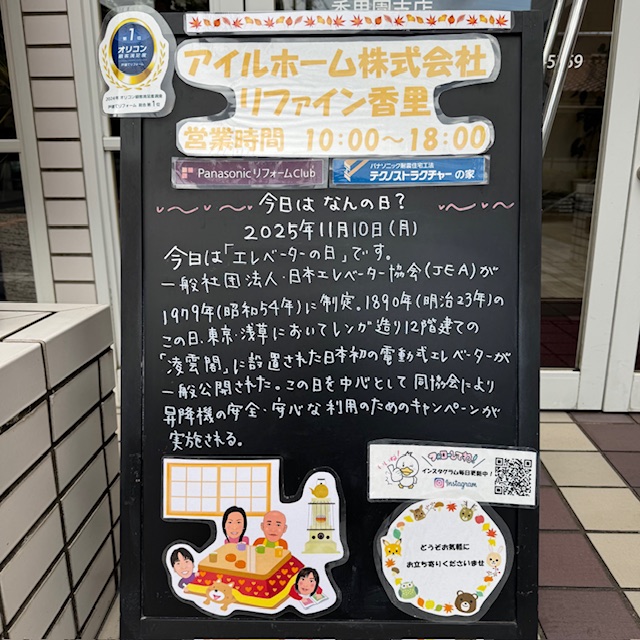 香里園吉店
第1位
オリコン
顧客満足度
アイルホーム株式会社
リファイン香里
営業時間 10:00～18:00
Panasonic リフォームClub
パナソニック耐震住宅工法
テクノストラクチャーの家
今日は なんの日？
2025年11月10日(月)
今日は「エレベーターの日」です。
一般社団法人・日本エレベーター協会(JEA)が
1979年(昭和54年)に制定。1890年(明治23年)の
この日、東京・浅草においてレンガ造り12階建ての
「凌雲閣」に設置された日本初の電動式エレベーターが
一般公開された。この日を中心として 同協会により
昇降機の安全・安心な利用のためのキャンペーンが
実施される。
インスタグラム毎日更新中！
Instagram
どうぞお気軽に
お立ち寄りくださいませ